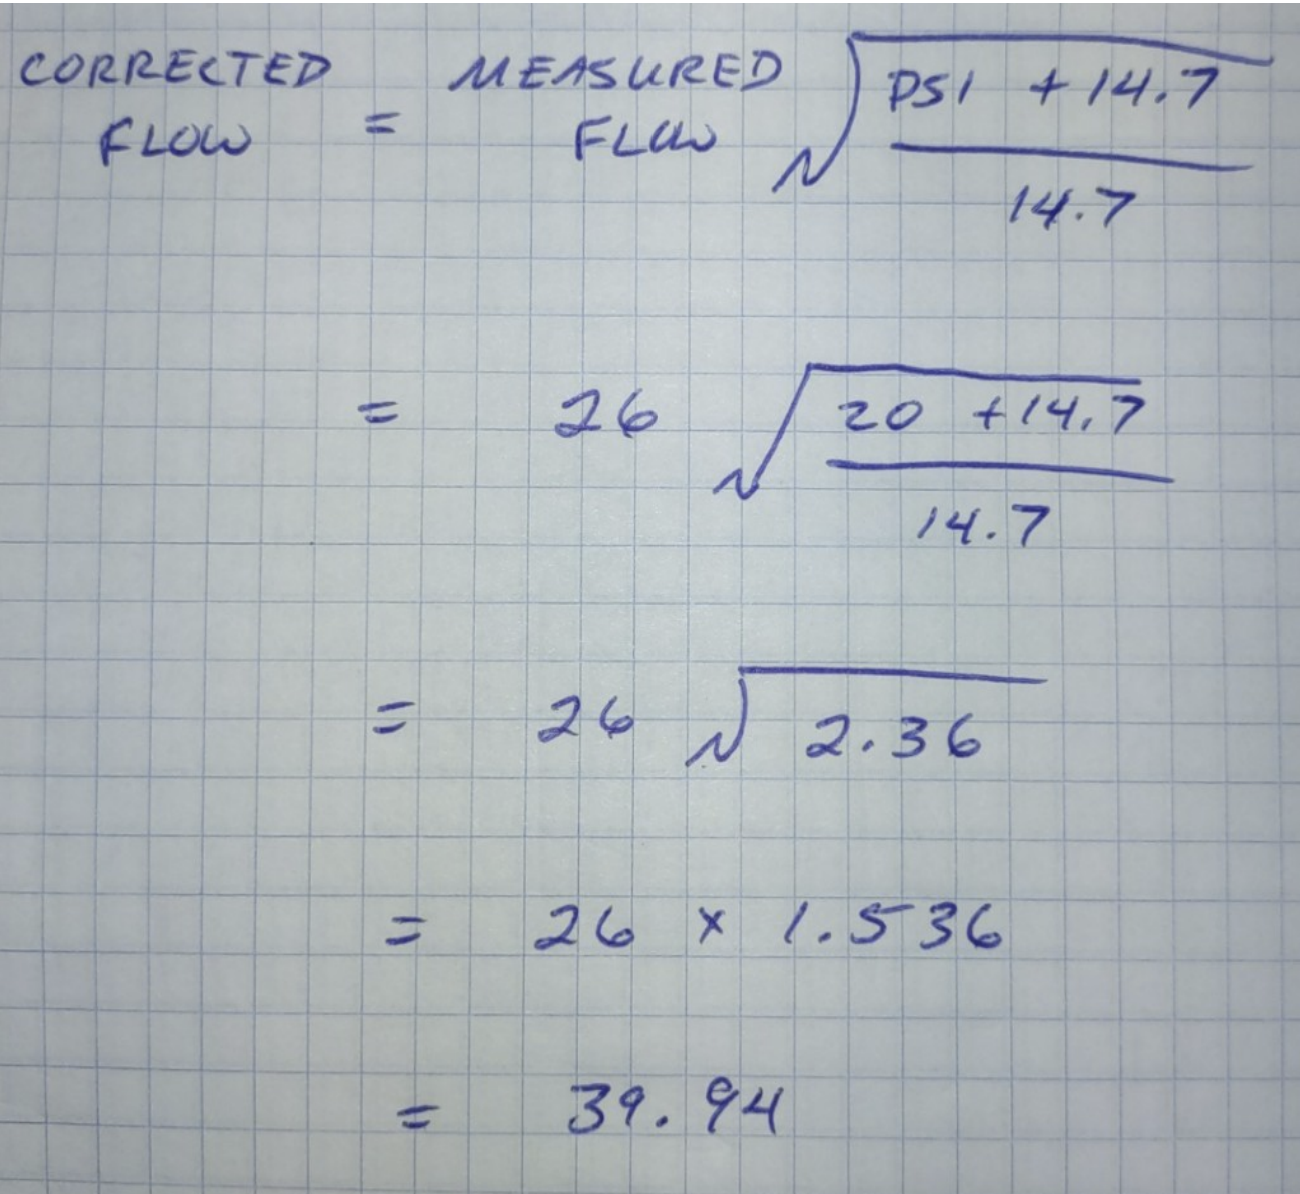 CORRECTED FLOW = MEASURED FLOW √((PSI + 14.7) / 14.7)
= 26 √((20 + 14.7) / 14.7)
= 26 √(2.36)
= 26 × 1.536
= 39.94